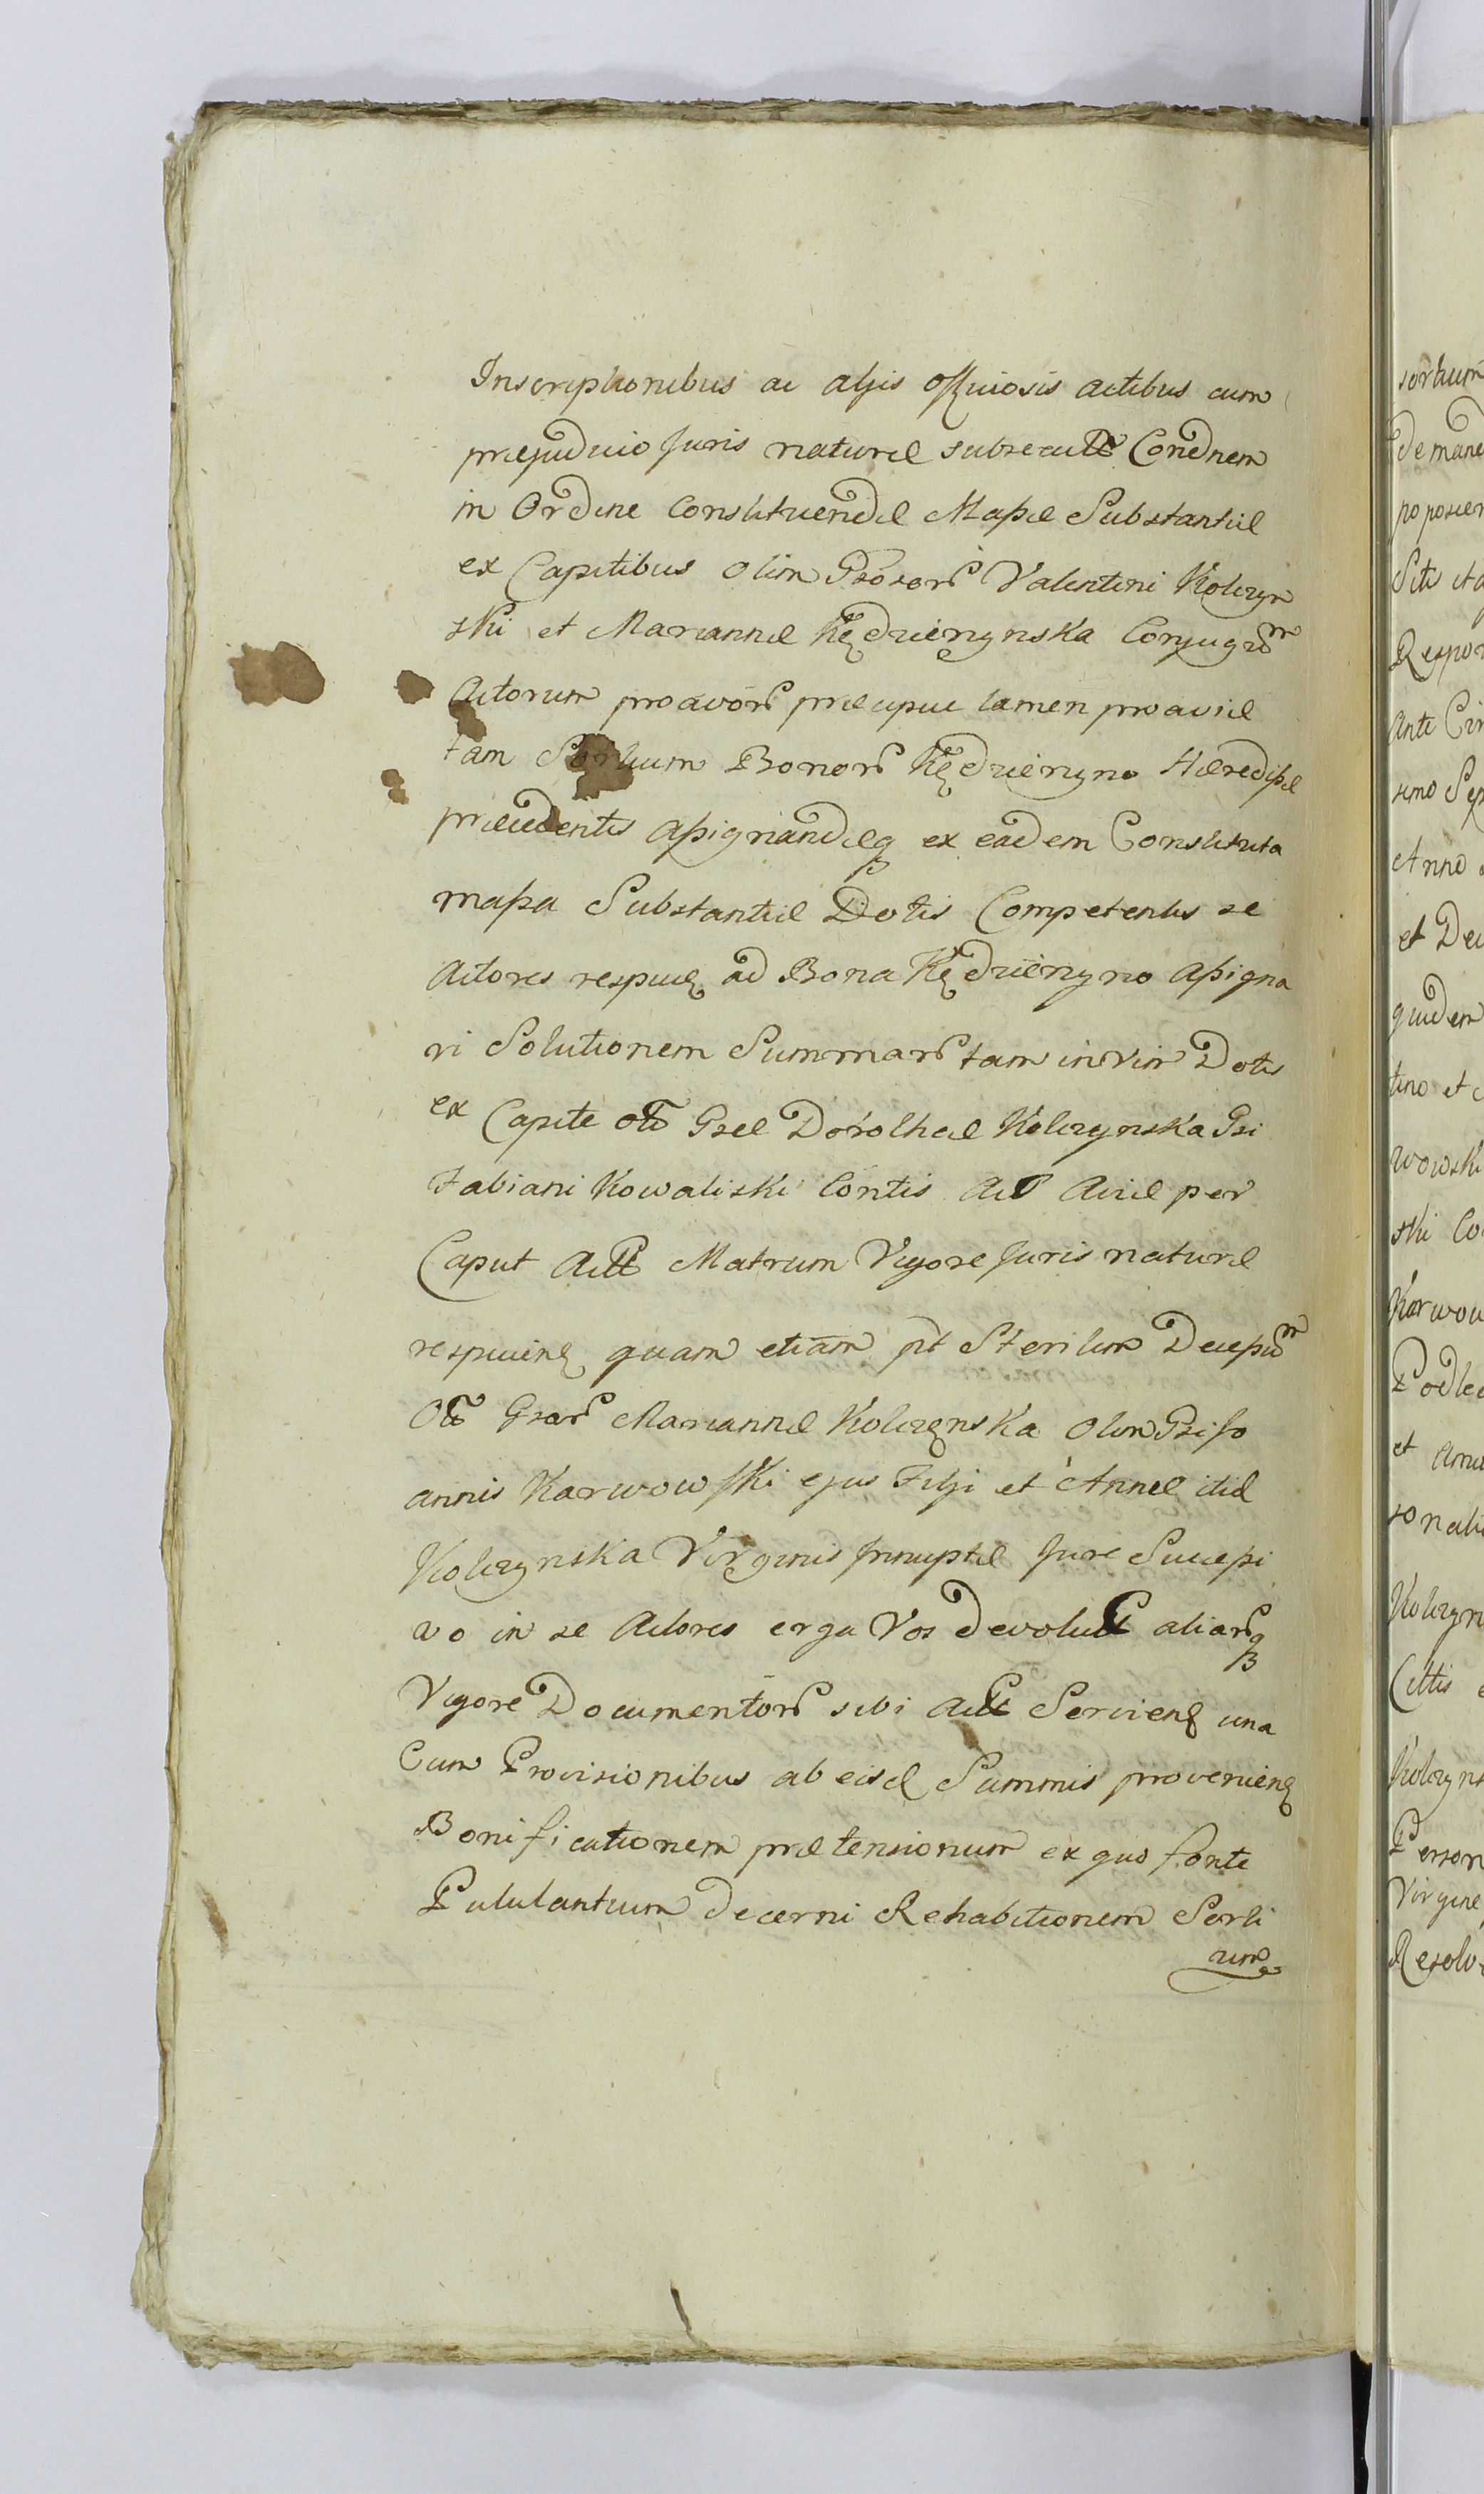 Inscriptionibus ac alijs officiosis actibus cum
præjudicio Juris naturæ subsecutt Condnem
in Ordine Constituendæ Massæ Substantiæ
ex Capitibus olim Gsosor Valentini Kolczyn
ski et Mariannæ Kędzierzynska Conjugum
Actorum proavor præcipue tamen proaviæ
tam Sortium Bonor Kędzierzyno Hæredissæ
præcedentis assignandæq ex eadem Constituta
massa Substantiæ Dotis Competentis se
Actores respicien ad Bona Kędzierzyno assigna
ri Solutionem Summar tam in vim Dotis
ex Capite olo Gsæ Dorotheæ Kolczynska Gsi
Fabiani Kowaliski Contis Act Aviæ per
Caput Actt Matrum Vigore Juris naturæ
respicien quam etiam pt Sterilium Decessum
Olo Gsar Mariannæ Kolczynska olim Gsi Jo
annis Karwowski ejus Filji et Annæ itid
Kolczynska Virginis Innuptæ Jure Successi
vo in se Actores erga Vos devolutt aliarq
Vigore Documentor sibi Actt Servien una
Cum Provisionibus ab eisd Summis provenien
Bonificationem prætensionum ex quo fonte
Pululantium decerni Rehabitionem Sorti
um
sortium
et De
quidem
wowski
ski Co
Podle
Kolczyn
Kolczyns
Person
Virgine
Resolv